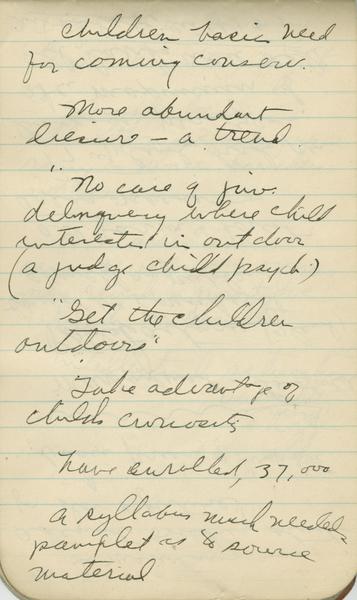 children basic need
for coming conserv.
More abundant
liesure - a trend
"No case of juv.
delinquery where child
interested in outdoor
(a judge child psych)
"Get the children
outdoors"
Take advantage of
childs curiosity
have enrolled, 37,000
a syllabus much needed -
pamplet as to source
material